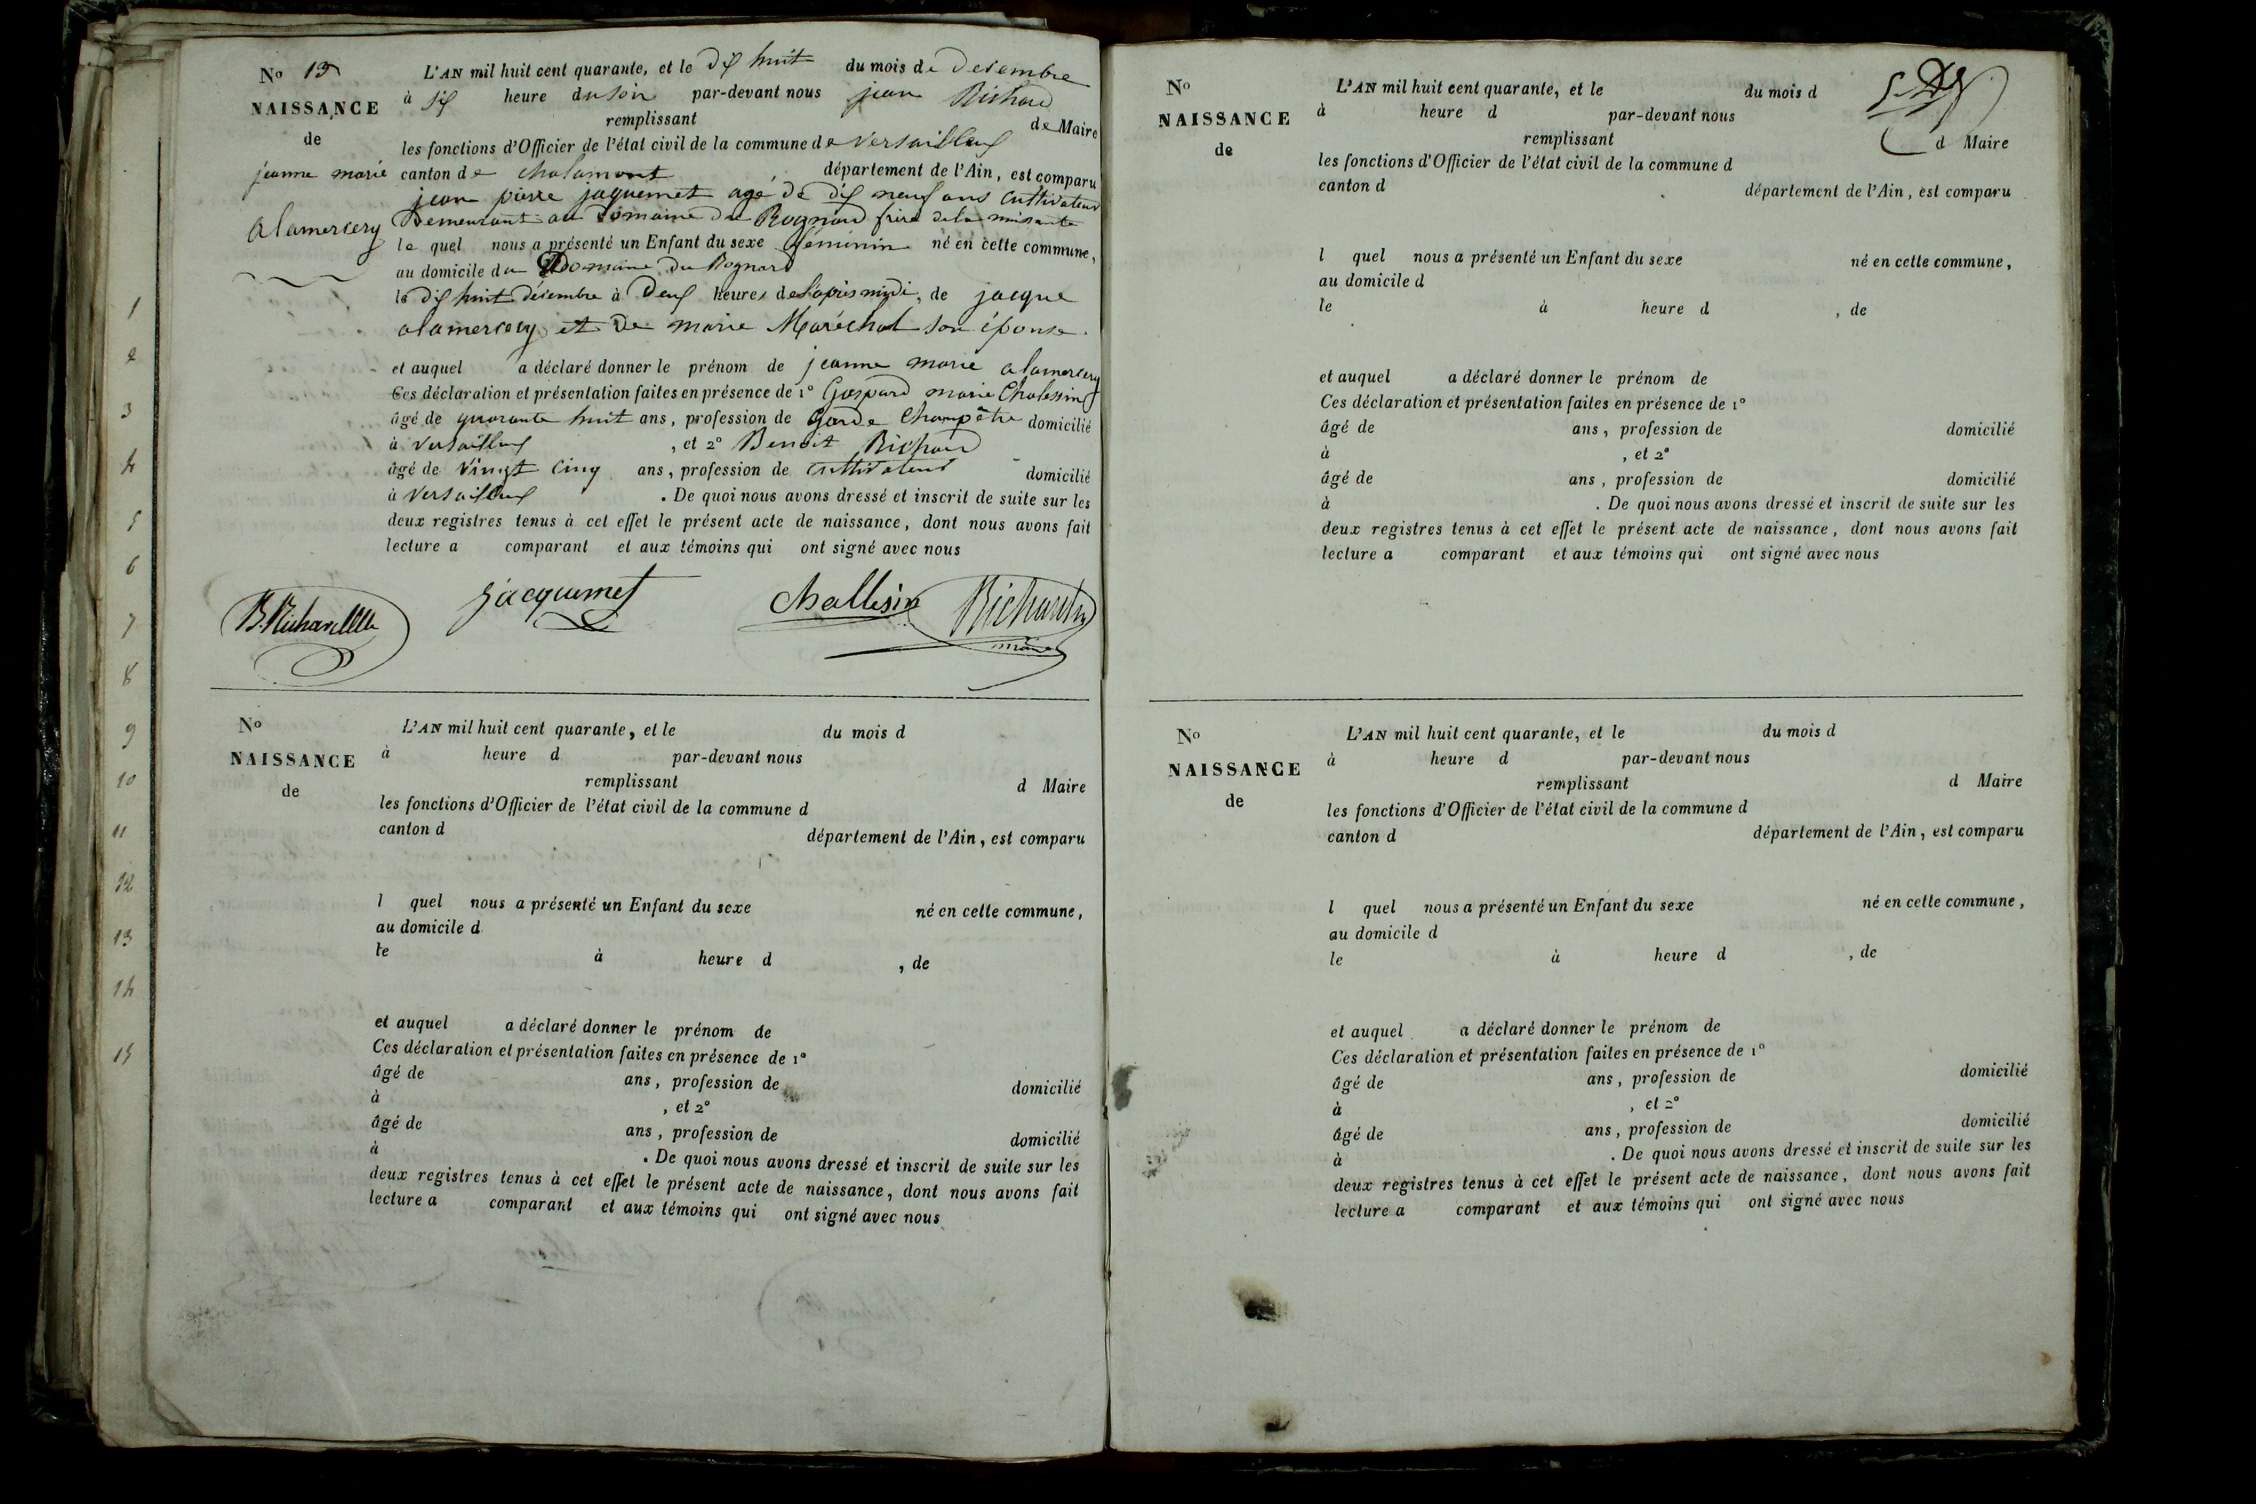 1
2
3
4
5
6
7
8
9
10
11
12
13
14
15
No 15
NAISSANCE
de
jeanne marie
alamercery
L'AN mil huit cent quarante, et le dix huit du mois de decembre
à six heure du soir par-devant nous jean Richard
remplissant de Maire
les fonctions d'Officier de l'état civil de la commune de versailleux
canton de chalamont département de l'Ain, est comparu
jean pierre jaquemet agé de dix neuf ans cultivateur
Demeurant au domaine du Rognard frère de la naissante
le quel nous a présenté un Enfant du sexe féminin né en cette commune,
au domicile du Domaine du Rognard
le dix huit décembre à Deux heures de l'après midi, de jacque
alamercery et de marie Maréchal son épouse.
et auquel a déclaré donner le prénom de jeanne marie alamercery
Ces déclaration et présentation faites en présence de 1° Gaspard marie Chalessin
âgé de quarante huit ans, profession de Garde Champêtre domicilié
à Versailleux , et 2° Benoit Richard
âgé de vingt cinq ans, profession de cultivateur domicilié
à Versailleux . De quoi nous avons dressé et inscrit de suite sur les
deux registres tenus à cet effet le présent acte de naissance, dont nous avons fait
lecture a comparant et aux témoins qui ont signé avec nous
B. Richard jacquemet challesin Richard
maire
No
NAISSANCE
de
L'AN mil huit cent quarante, et le du mois d
à heure d par-devant nous
remplissant d Maire
les fonctions d'Officier de l'état civil de la commune d
canton d département de l'Ain, est comparu
l quel nous a présenté un Enfant du sexe né en cette commune,
au domicile d
le à heure d , de
et auquel a déclaré donner le prénom de
Ces déclaration et présentation faites en présence de 1°
âgé de ans, profession de domicilié
à , et 2°
âgé de ans, profession de domicilié
à . De quoi nous avons dressé et inscrit de suite sur les
deux registres tenus à cet effet le présent acte de naissance, dont nous avons fait
lecture a comparant et aux témoins qui ont signé avec nous
No
NAISSANCE
de
L'AN mil huit cent quarante, et le du mois d
à heure d par-devant nous
remplissant d Maire
les fonctions d'Officier de l'état civil de la commune d
canton d département de l'Ain, est comparu
l quel nous a présenté un Enfant du sexe né en cette commune,
au domicile d
le à heure d , de
et auquel a déclaré donner le prénom de
Ces déclaration et présentation faites en présence de 1°
âgé de ans, profession de domicilié
à , et 2°
âgé de ans, profession de domicilié
à . De quoi nous avons dressé et inscrit de suite sur les
deux registres tenus à cet effet le présent acte de naissance, dont nous avons fait
lecture a comparant et aux témoins qui ont signé avec nous
No
NAISSANCE
de
L'AN mil huit cent quarante, et le du mois d
à heure d par-devant nous
remplissant d Maire
les fonctions d'Officier de l'état civil de la commune d
canton d département de l'Ain, est comparu
l quel nous a présenté un Enfant du sexe né en cette commune,
au domicile d
le à heure d , de
et auquel a déclaré donner le prénom de
Ces déclaration et présentation faites en présence de 1°
âgé de ans, profession de domicilié
à , et 2°
âgé de ans, profession de domicilié
à . De quoi nous avons dressé et inscrit de suite sur les
deux registres tenus à cet effet le présent acte de naissance, dont nous avons fait
lecture a comparant et aux témoins qui ont signé avec nous